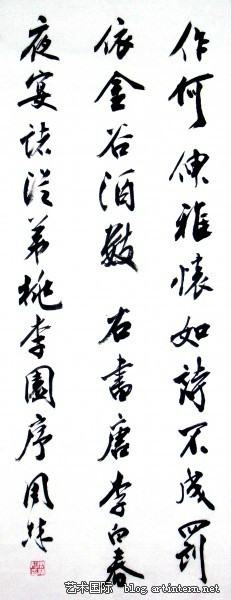 作何伸雅懷如詩不成罰
依金谷酒數 右書唐李白春
夜宴諸從弟桃李園序周
艺术国际 blog.artintern.net